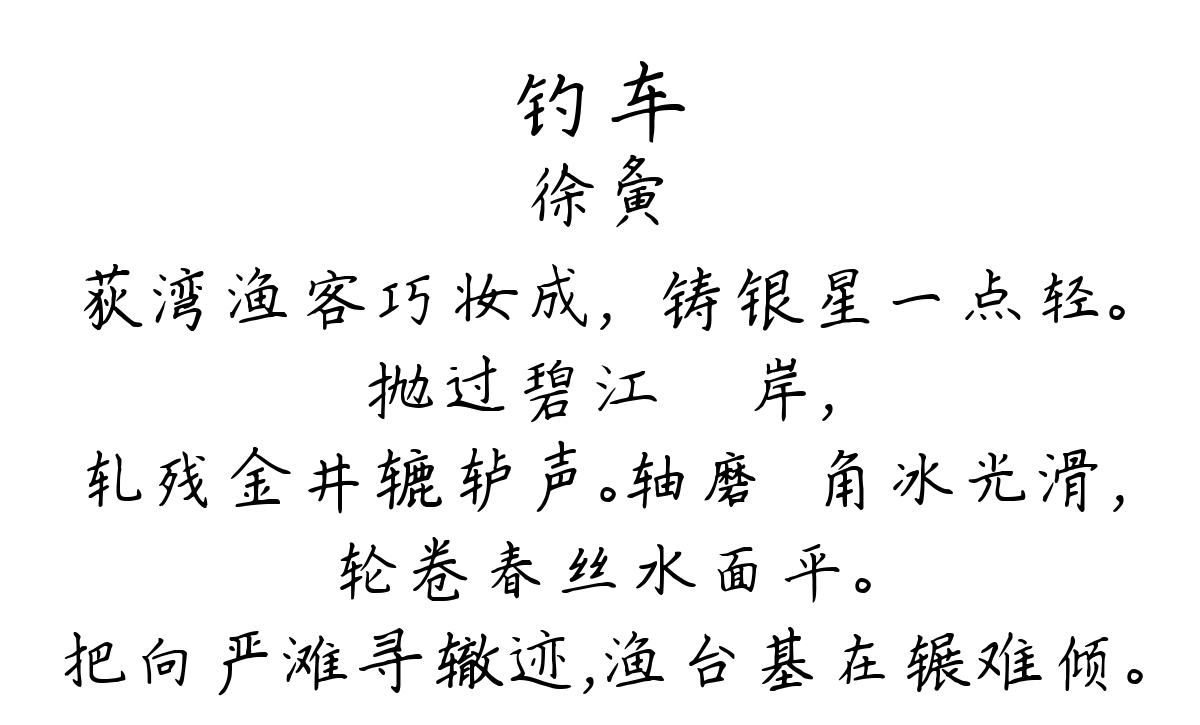 钓车
徐夤
荻湾渔客巧妆成,铸银星一点轻。
抛过碧江 岸,
轧残金井辘轳声。轴磨 角冰光滑,
轮卷春丝水面平。
把向严滩寻辙迹,渔台基在辗难倾。